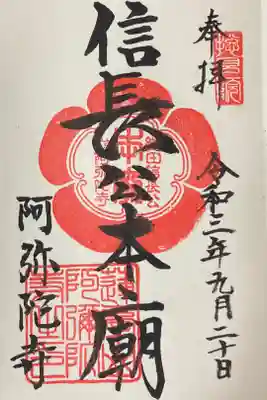 奉拝
令和三年九月二十日
信長公本廟
阿弥陀寺